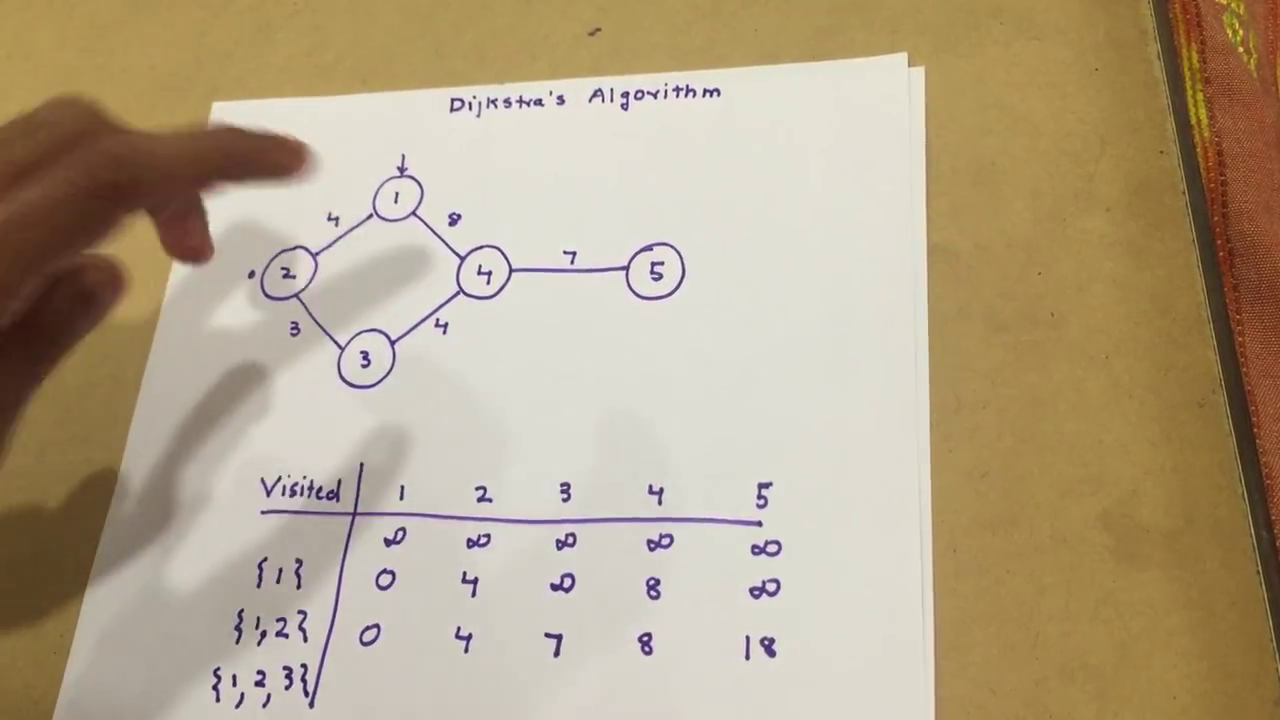 Dijkstra's Algorithm
1
4 8
2 4 7 5
3 4
3
Visited 1 2 3 4 5
∞ ∞ ∞ ∞ ∞
{1} 0 4 ∞ 8 ∞
{1,2} 0 4 7 8 18
{1,2,3}